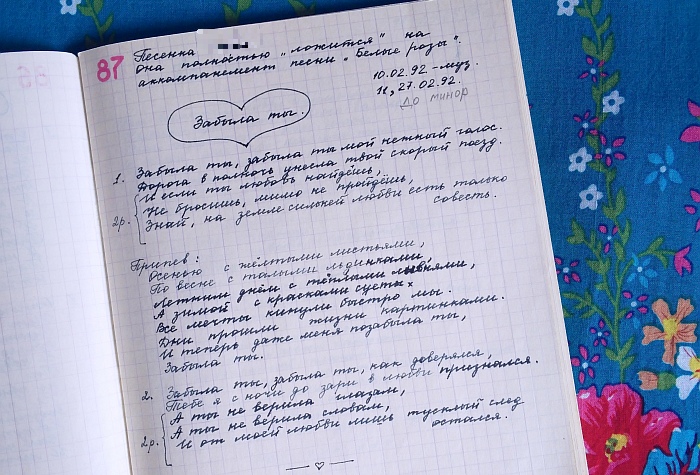 87
Песенка
она полностью „ложится" на
аккомпанемент песни „Белые розы".
10.02.92 - муз.
11, 27.02.92.
До минор
Забыла ты.
1. Забыла ты, забыла ты мой нежный голос.
Дорога в полночь унесла твой скорый поезд.
И если ты любовь найдёшь,
Не бросишь, мимо не пройдёшь,
2р. Знай, на земле сильней любви есть только
совесть.
Припев:
Осенью с жёлтыми листьями,
По весне с талыми льдинками,
Летним днём с тёплыми ливнями,
А зимой с красками суеты
Все мечты кинули быстро мы.
Дни прошли жизни картинками.
И теперь даже меня позабыла ты,
Забыла ты.
2. Забыла ты, забыла ты, как доверялся,
Тебе я с ночи до зари в любви признался.
А ты не верила глазам,
А ты не верила словам,
2р. И от моей любви лишь тусклый след
остался.